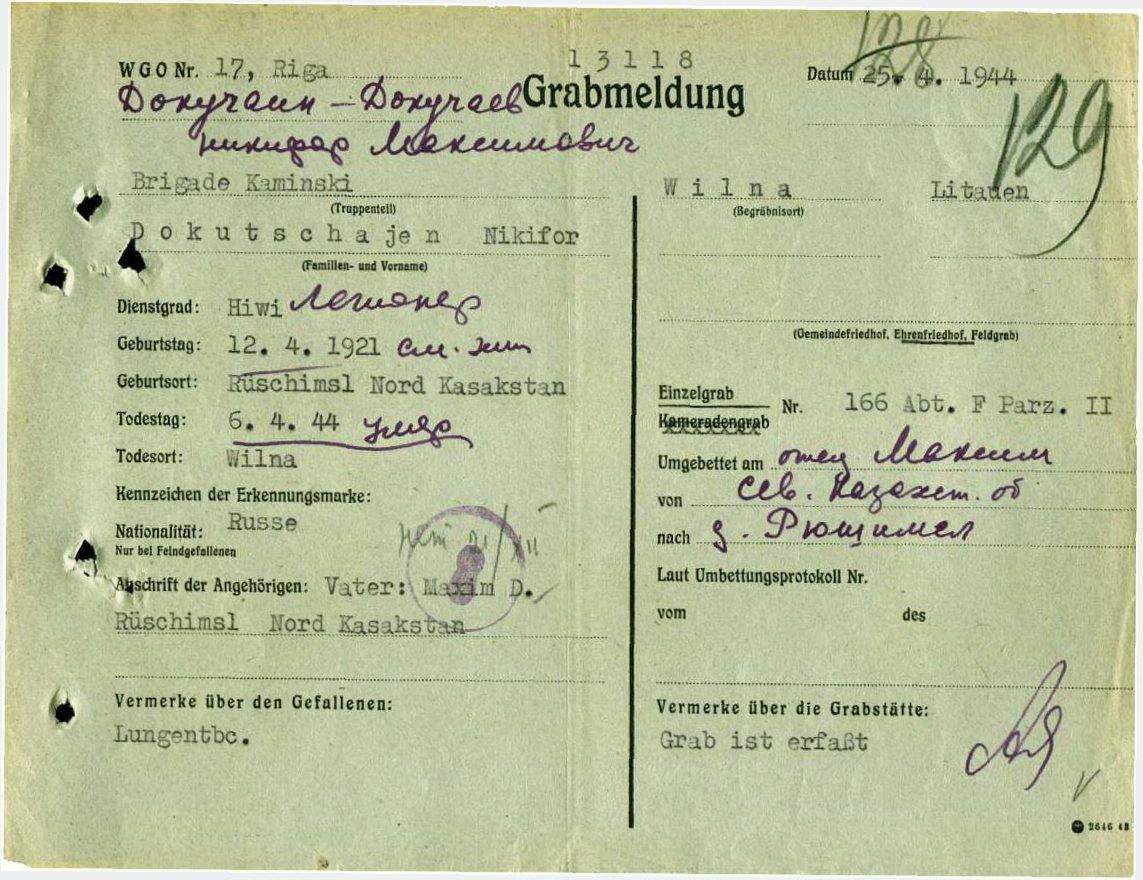 13118
128
WGO Nr. 17, Riga
Grabmeldung
Datum 25. 4. 1944
Докучаин – Докучаев
никифор Максимович
129
Brigade Kaminski
(Truppenteil)
Dokutschajen Nikifor
(Familien- und Vorname)
Dienstgrad: Hiwi Легионер
Geburtstag: 12. 4. 1921
Geburtsort: Rüschimsl Nord Kasakstan
Todestag: 6. 4. 44 умер
Todesort: Wilna
Kennzeichen der Erkennungsmarke:
Nationalität: Russe
Nur bei Feindgefallenen
Anschrift der Angehörigen: Vater: Maxim D.
Rüschimsl Nord Kasakstan
Vermerke über den Gefallenen:
Lungentbc.
Wilna Litauen
(Begräbnisort)
(Gemeindefriedhof, Ehrenfriedhof, Feldgrab)
Einzelgrab
Kameradengrab
Nr. 166 Abt. F Parz. II
Umgebettet am отец Максим
von Сев. Казахст. об
nach д. Рюшимсл
Laut Umbettungsprotokoll Nr.
vom des
Vermerke über die Grabstätte:
Grab ist erfaßt
2646 43